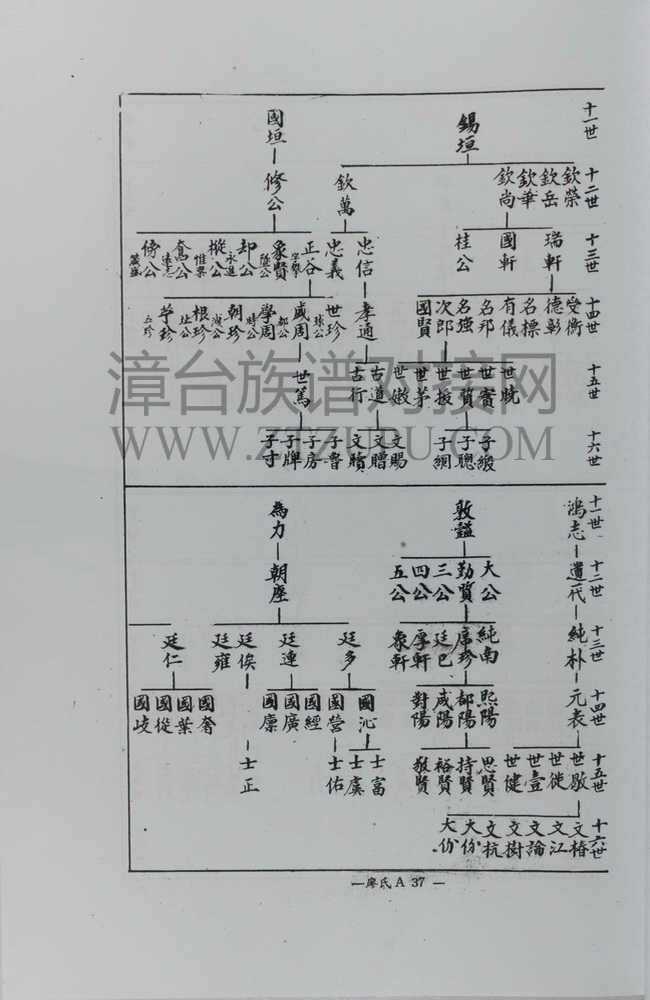 十一世
錫垣
國垣
十二世
欽榮
欽岳
欽華
欽尚
欽萬
修公
十三世
瑞軒
國軒
桂公
忠信
忠義
正谷
象賢
却公
樅公
奮公
傍公
十四世
受衡
德彰
名標
有儀
名邦
名強
次郎
國賢
孝通
世珍
盛周
學周
朝珍
根珍
十五世
世曉
世賓
世賀
世援
世茅
世嫩
古道
古行
世篤
十六世
子緞
子聰
子綱
文賜
文贈
文贖
子房
子牌
子寸
漳台族谱对接网
WWW.ZTZUPU.COM
十一世
鴻志
敦謚
為力
十二世
遺代
大公
勤質
三公
四公
五公
朝座
十三世
純朴
純南
席珍
廷巳
厚軒
象軒
廷多
廷連
廷俟
廷雍
廷仁
十四世
元表
熙陽
都陽
咸陽
對陽
國沁
國營
國經
國廣
國廩
國奢
國葉
國從
國歧
十五世
世徙
世壹
世健
思賢
持賢
裕賢
敬賢
士富
士虞
士佑
士正
十六世
文椿
文江
文論
文樹
文杭
大份
大份
—廖氏 A 37 —